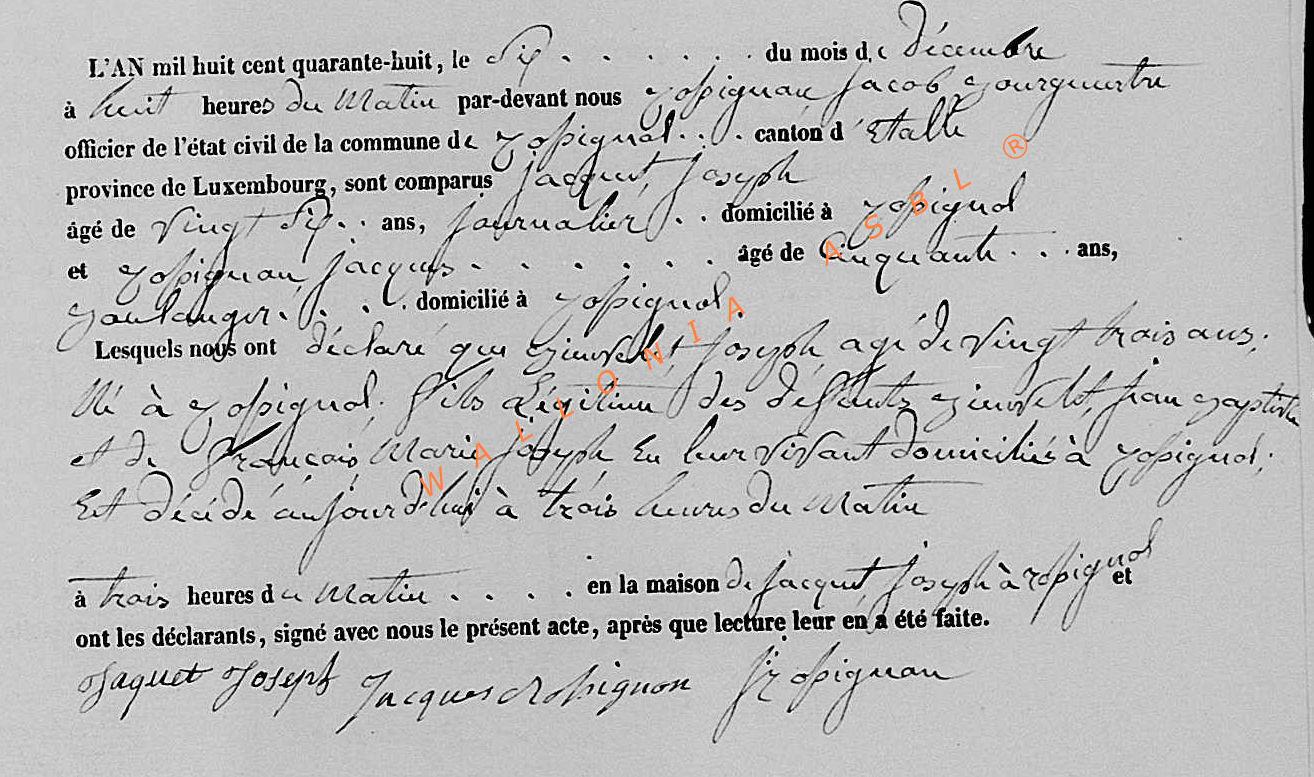 L'AN mil huit cent quarante-huit, le Six . . . . . . du mois de décembre
à huit heures du Matin par-devant nous Rossignon Jacob Bourguestre
officier de l'état civil de la commune de Rossignol . . . canton d'Etalle
province de Luxembourg, sont comparus Jacquet, Joseph
âgé de vingt Six . . ans, journalier . . domicilié à Rossignol
et Rossignon Jacques . . . . . . . âgé de Cinquante . . . ans,
Boulanger . . . . domicilié à Rossignol.
Lesquels nous ont déclaré que Joseph, agé de vingt trois ans,
Né à Rossignol. fils Légitime des deffunts Jean Baptiste
et de François Marie Joseph En leur vivant domiciliés à Rossignol;
Est décédé aujourd'hui à trois heures du Matin
à trois heures du Matin . . . . en la maison de Jacquet Joseph à Rossignol et
ont les déclarants, signé avec nous le présent acte, après que lecture leur en a été faite.
Jaquet Joseph Jacques Rossignon J Rossignon
WALLONIA ASBL ®